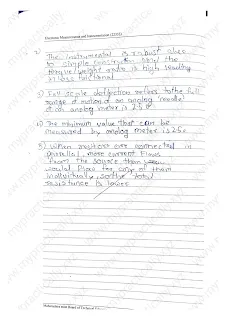 Electronic Measurement and Instrumentation (22333)
2) The instrumental is robust due
to simple construction and the
torque/weight ratio is high reading
is less frictional
3) Full scale deflection refers to the full
range of motion of an analog needle
of an analog meter is 250
4) The minimum value that can be
measured by analog meter is 250
5) When resistors are connected in
parallel, more current flows
from the source than
would flow for any of them
individually, so the total
resistance is lower
Maharashtra State Board of Technical